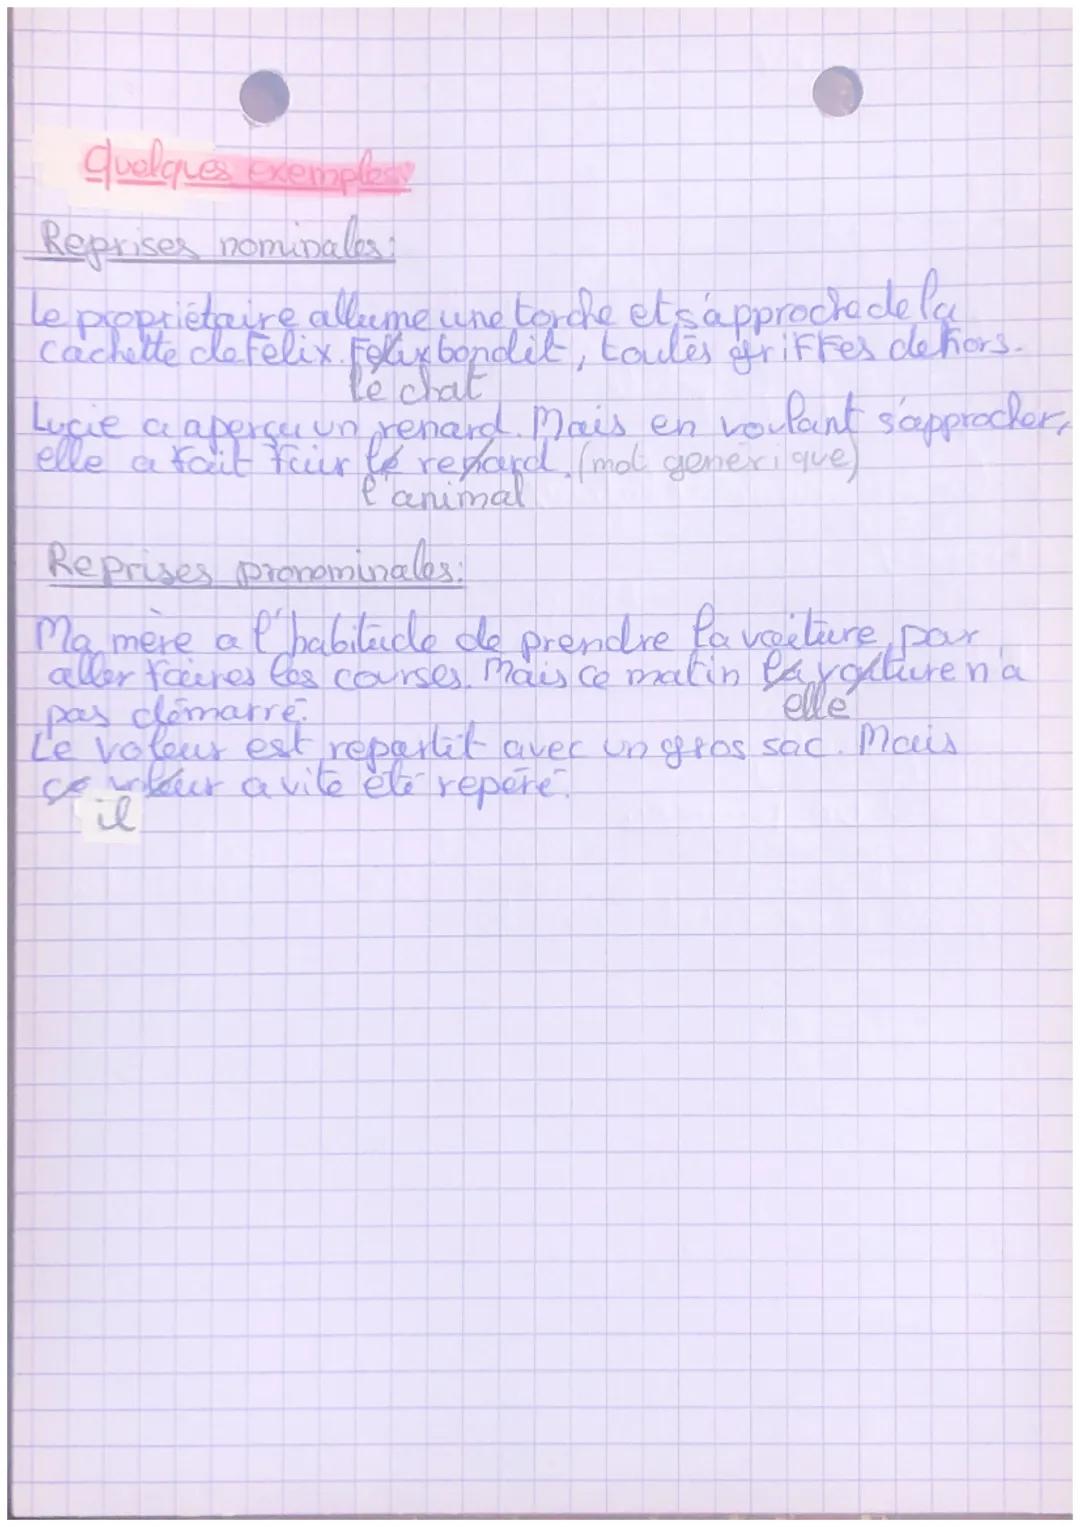 Quelques exemples:
Reprises nominales:
Le propriétaire allume une torche et s'approche de la
cachette de Félix. Félix bondit, toutes griffes dehors.
le chat
Lucie a aperçu un renard. Mais en voulant s'approcher,
elle a fait fuir le renard. (mot générique)
l'animal
Reprises pronominales:
Ma mère a l'habitude de prendre la voiture pour
aller faires les courses. Mais ce matin la voiture n'a
elle
pas démarré.
Le voleur est repartit avec un gros sac. Mais
ce voleur a vite été repéré.
il